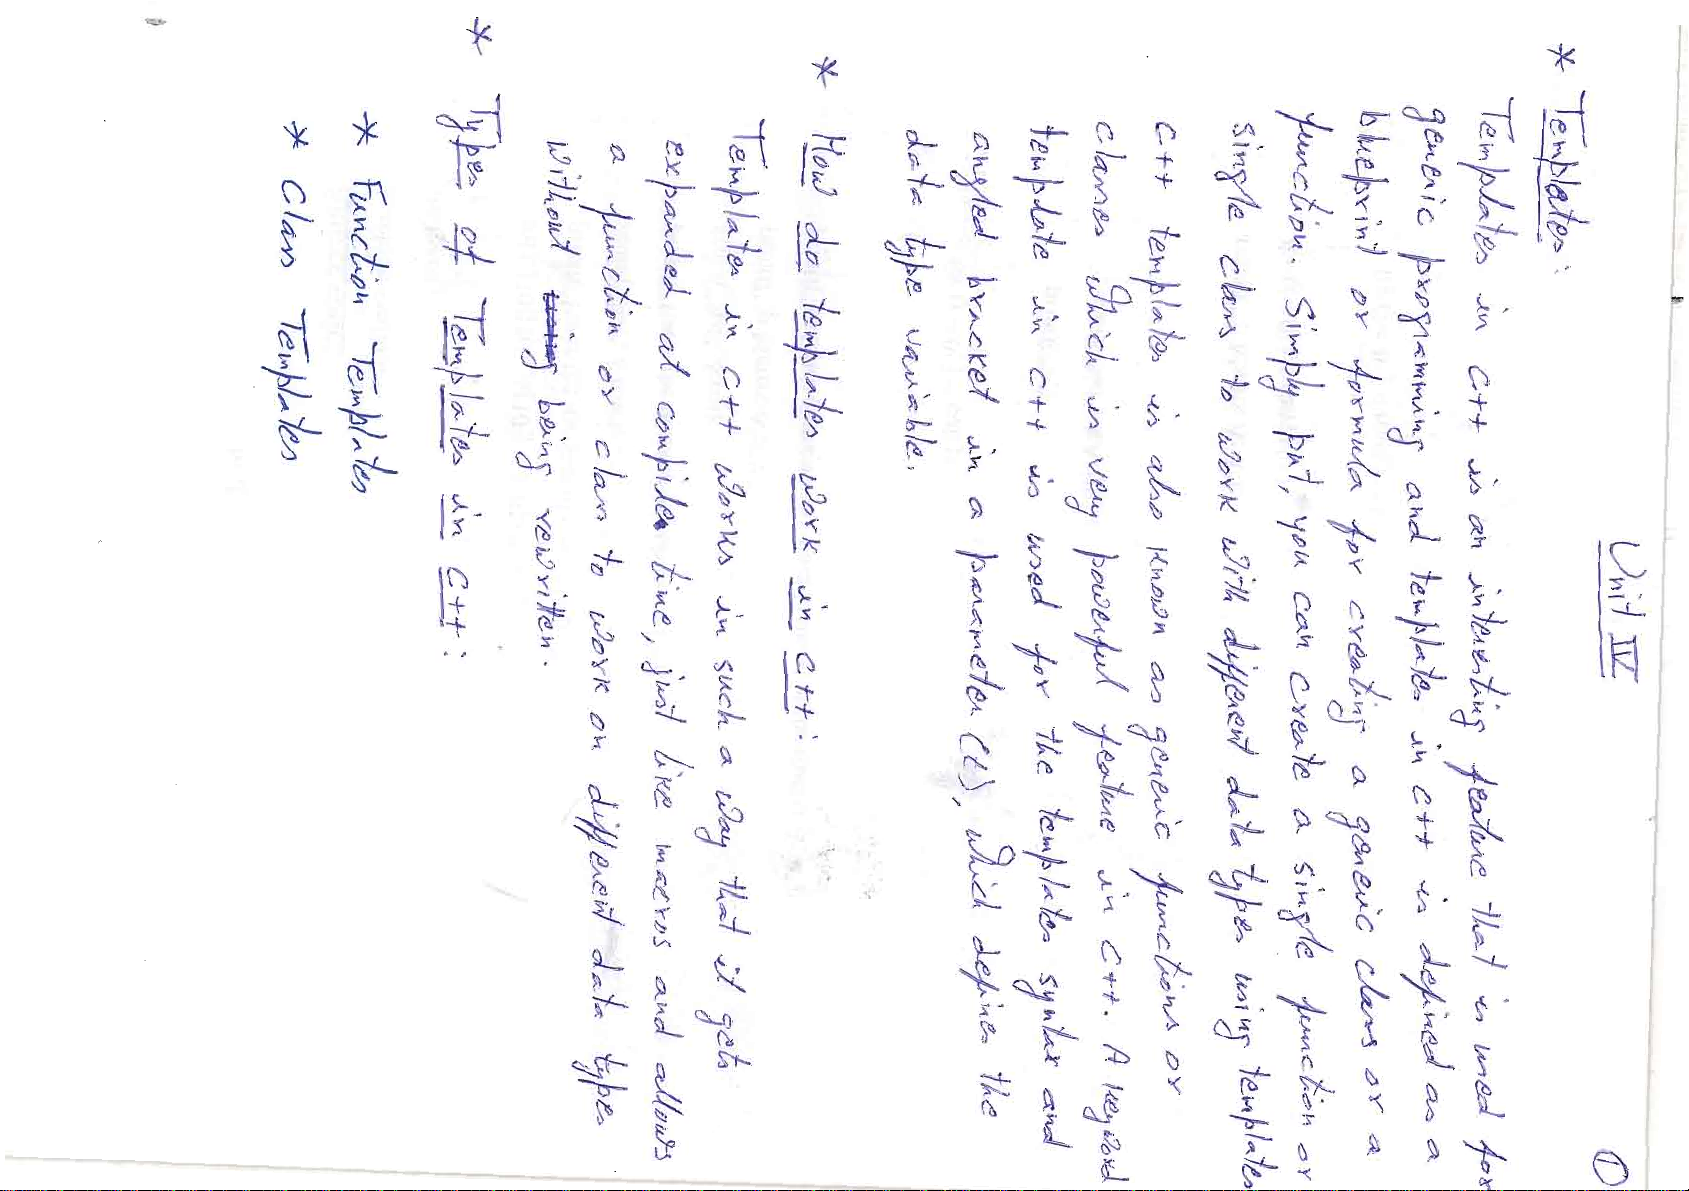 Unit IV
①
* Templates:
Templates in C++ is an interesting feature that is used for
generic programming and templates in C++ is defined as a
blueprint or formula for creating a generic class or a
function. Simply put, you can create a single function or
single class to work with different data types using templates
C++ templates is also known as generic functions or
classes which is very powerful feature in C++. A keyword
template in C++ is used for the templates syntax and
angled bracket in a parameter (t), which defines the
data type variable.
* How do templates work in C++:
Templates in C++ works in such a way that it gets
expanded at compile time, just like macros and allows
a function or class to work on different data types
without being rewritten.
* Types of Templates in C++:
* Function Templates
* Class Templates